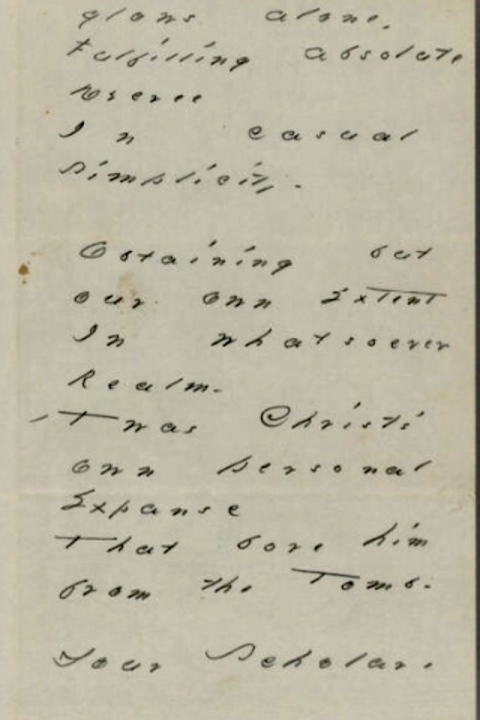 glows alone,
Fulfilling absolute
Decree
In casual
simplicity.
Obtaining but
our own Extent
In whatsoever
Realm -
'Twas Christ's
own personal
Expanse
That bore him
from the Tomb -
Your Scholar.